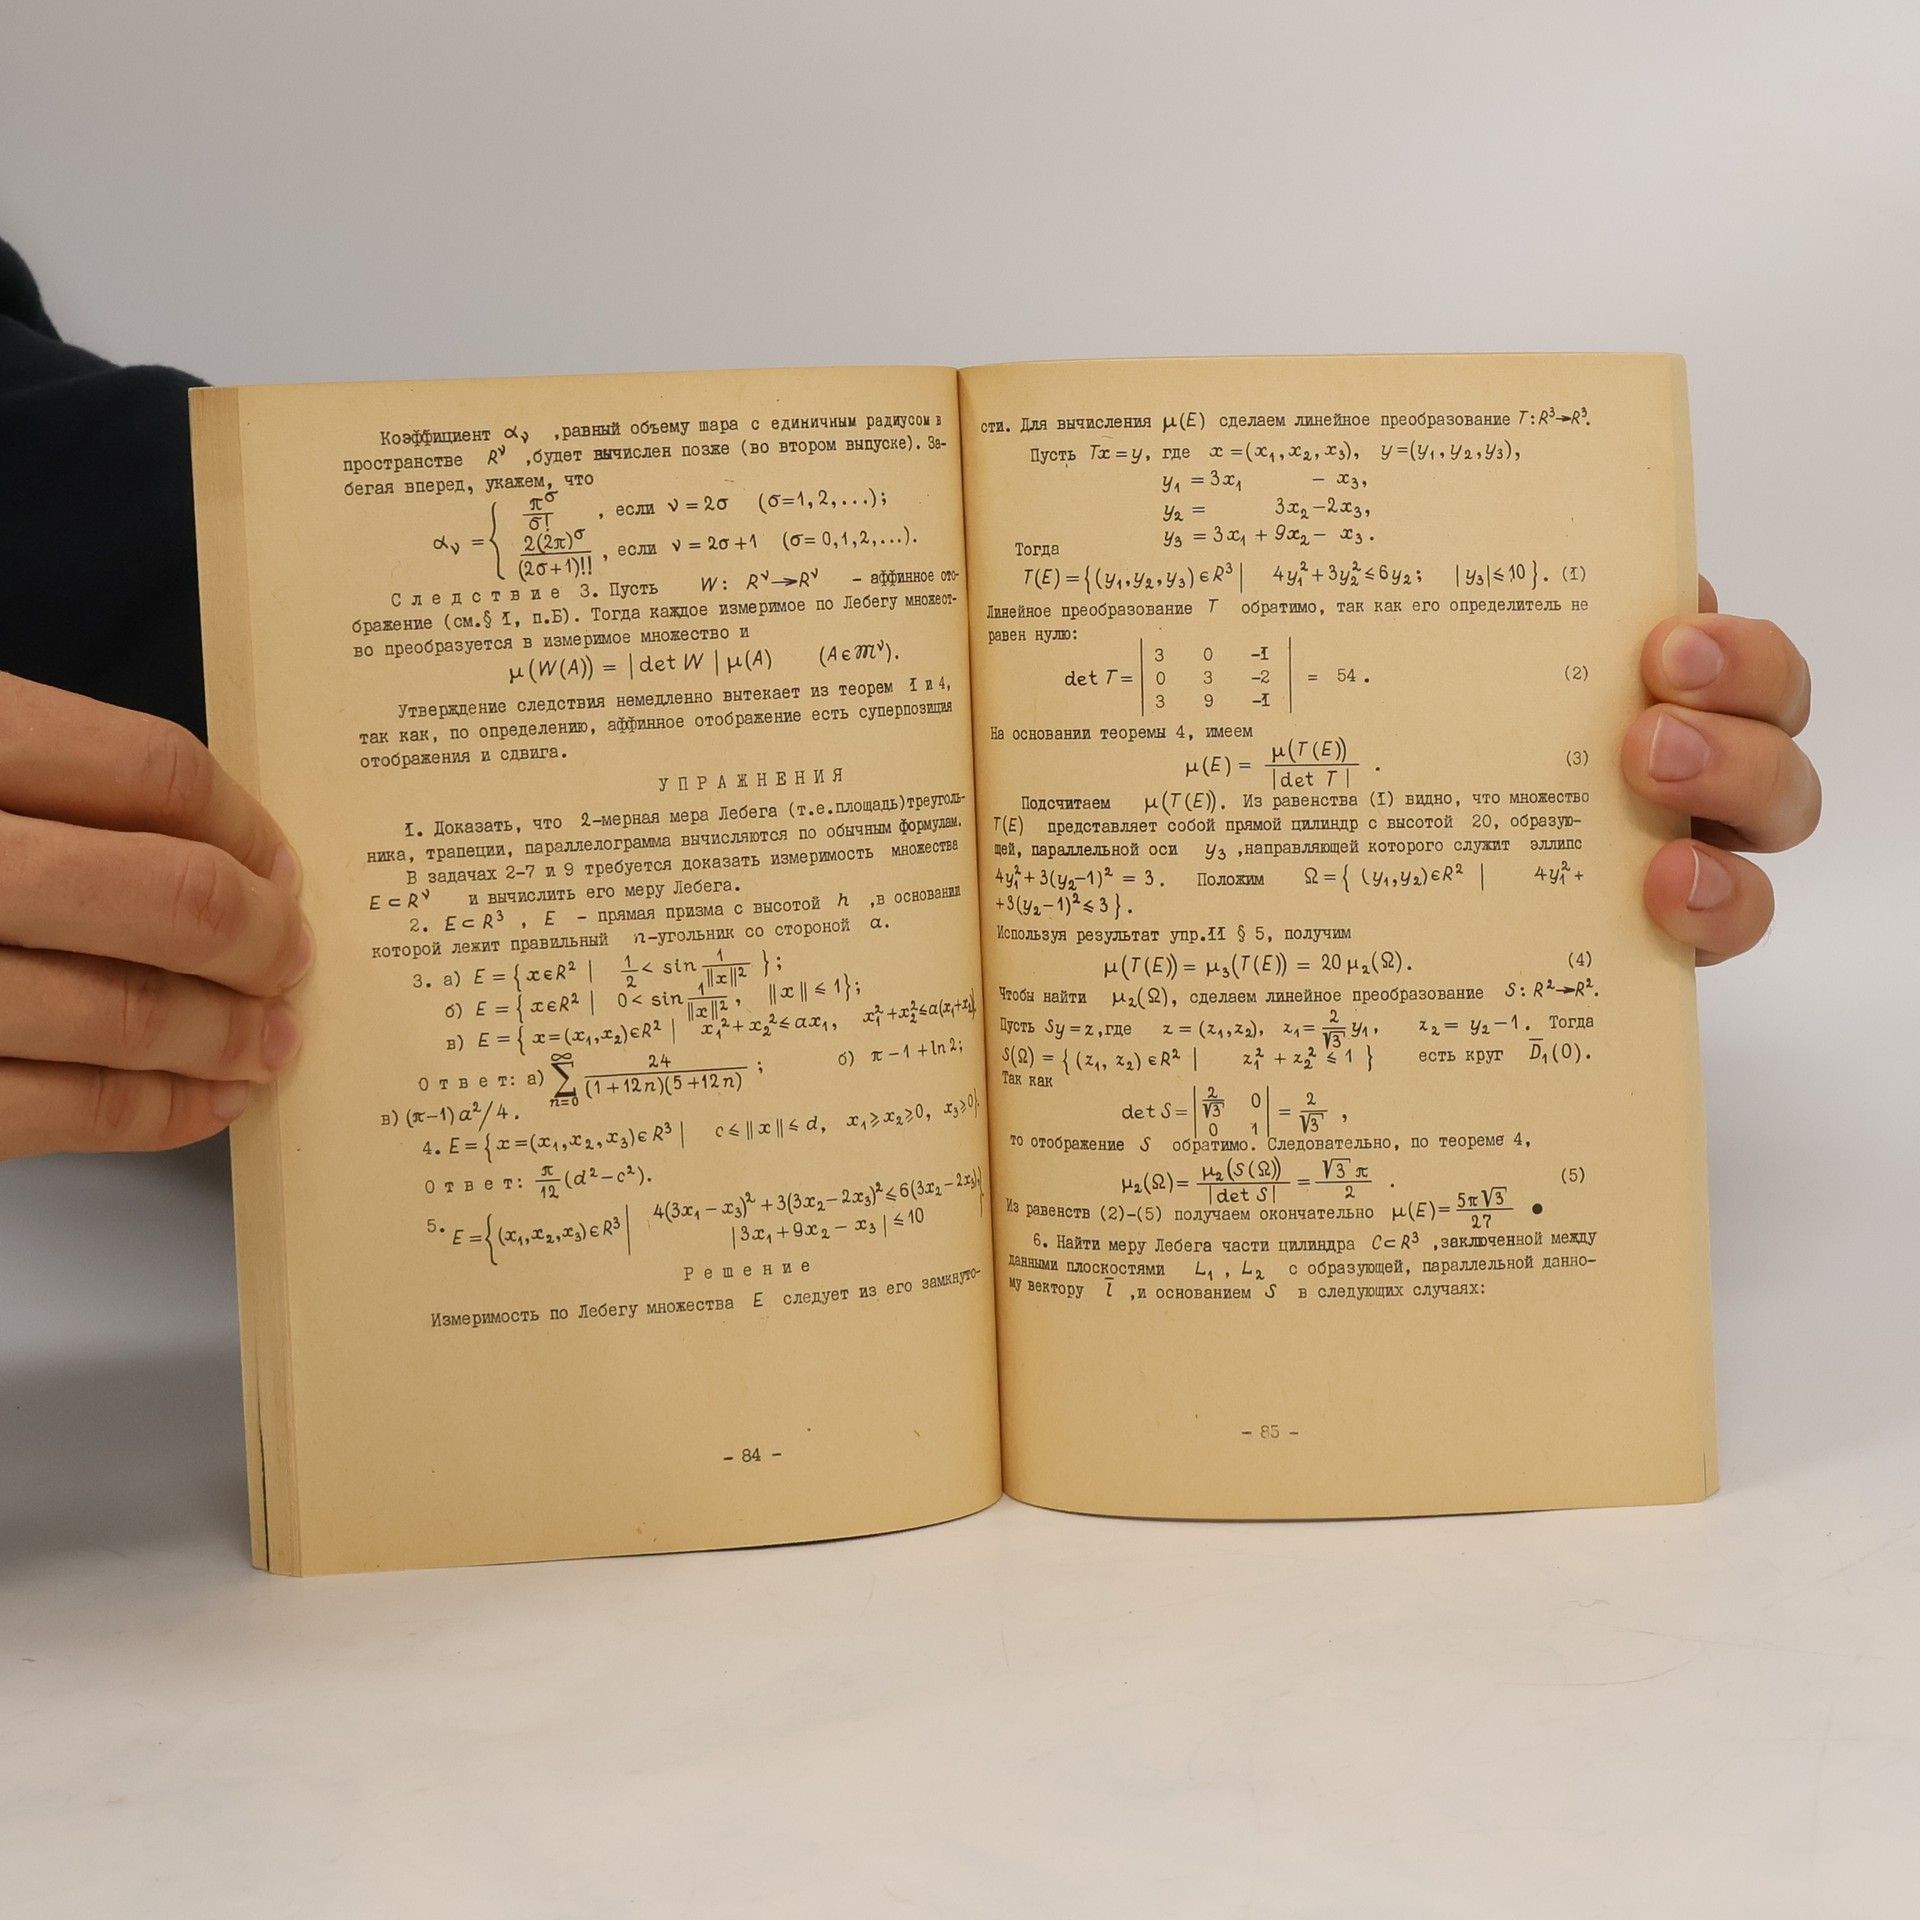 Коэффициент α_ν ,равный объему шара с единичным радиусом в
пространстве R^ν ,будет вычислен позже (во втором выпуске). За-
бегая вперед, укажем, что
α_ν = { π^σ/σ! , если ν = 2σ (σ=1,2,...);
2(2π)^σ/(2σ+1)!! , если ν = 2σ+1 (σ=0,1,2,...).
Следствие 3. Пусть W: R^ν→R^ν – аффинное ото-
бражение (см.§ I, п.Б). Тогда каждое измеримое по Лебегу множест-
во преобразуется в измеримое множество и
μ(W(A)) = |det W| μ(A) (A∈𝔐^ν).
Утверждение следствия немедленно вытекает из теорем I и 4,
так как, по определению, аффинное отображение есть суперпозиция
отображения и сдвига.
УПРАЖНЕНИЯ
I. Доказать, что 2-мерная мера Лебега (т.е.площадь)треуголь-
ника, трапеции, параллелограмма вычисляются по обычным формулам.
В задачах 2-7 и 9 требуется доказать измеримость множества
E⊂R^ν и вычислить его меру Лебега.
2. E⊂R³ , E – прямая призма с высотой h ,в основании
которой лежит правильный n-угольник со стороной a.
3. а) E = { x∈R² | 1/2 < sin 1/‖x‖² };
б) E = { x∈R² | 0 < sin 1/‖x‖² , ‖x‖ ⩽ 1};
в) E = { x=(x₁,x₂)∈R² | x₁²+x₂² ⩽ ax₁, x₁²+x₂² ⩽ a(x₁+x₂)}
Ответ: а) ∑_{n=0}^{∞} 24/((1+12n)(5+12n)) ; б) π–1+ln2;
в) (π–1)a²/4.
4. E = { x=(x₁,x₂,x₃)∈R³ | c ⩽ ‖x‖ ⩽ d, x₁⩾x₂⩾0, x₃⩾0}.
Ответ: π/12 (d²–c²).
5. E = {(x₁,x₂,x₃)∈R³ | 4(3x₁–x₃)²+3(3x₂–2x₃)² ⩽ 6(3x₂–2x₃),
|3x₁+9x₂–x₃| ⩽ 10 }.
Решение
Измеримость по Лебегу множества E следует из его замкнуто-
– 84 –
сти. Для вычисления μ(E) сделаем линейное преобразование T:R³→R³.
Пусть Tx=y, где x=(x₁,x₂,x₃), y=(y₁,y₂,y₃),
y₁ = 3x₁ – x₃,
y₂ = 3x₂–2x₃,
y₃ = 3x₁+9x₂– x₃.
Тогда
T(E)={(y₁,y₂,y₃)∈R³ | 4y₁²+3y₂² ⩽ 6y₂; |y₃| ⩽ 10 }. (I)
Линейное преобразование T обратимо, так как его определитель не
равен нулю:
det T = | 3 0 -I |
| 0 3 -2 | = 54 . (2)
| 3 9 -I |
На основании теоремы 4, имеем
μ(E) = μ(T(E))/|det T| . (3)
Подсчитаем μ(T(E)). Из равенства (I) видно, что множество
T(E) представляет собой прямой цилиндр с высотой 20, образую-
щей, параллельной оси y₃ ,направляющей которого служит эллипс
4y₁²+3(y₂–1)² = 3. Положим Ω = { (y₁,y₂)∈R² | 4y₁²+
+3(y₂–1)² ⩽ 3 }.
Используя результат упр.II § 5, получим
μ(T(E)) = μ₃(T(E)) = 20μ₂(Ω). (4)
Чтобы найти μ₂(Ω), сделаем линейное преобразование S: R²→R².
Пусть Sy=z,где z=(z₁,z₂), z₁= 2/√3 y₁, z₂ = y₂–1. Тогда
S(Ω) = { (z₁, z₂)∈R² | z₁²+z₂² ⩽ 1 } есть круг D̄₁(0).
Так как
det S = | 2/√3 0 |
| 0 1 | = 2/√3 ,
то отображение S обратимо. Следовательно, по теореме 4,
μ₂(Ω) = μ₂(S(Ω))/|det S| = √3 π/2 . (5)
Из равенств (2)–(5) получаем окончательно μ(E) = 5π√3/27 ●
6. Найти меру Лебега части цилиндра C⊂R³ ,заключенной между
данными плоскостями L₁ , L₂ с образующей, параллельной данно-
му вектору l̄ ,и основанием S в следующих случаях:
– 85 –